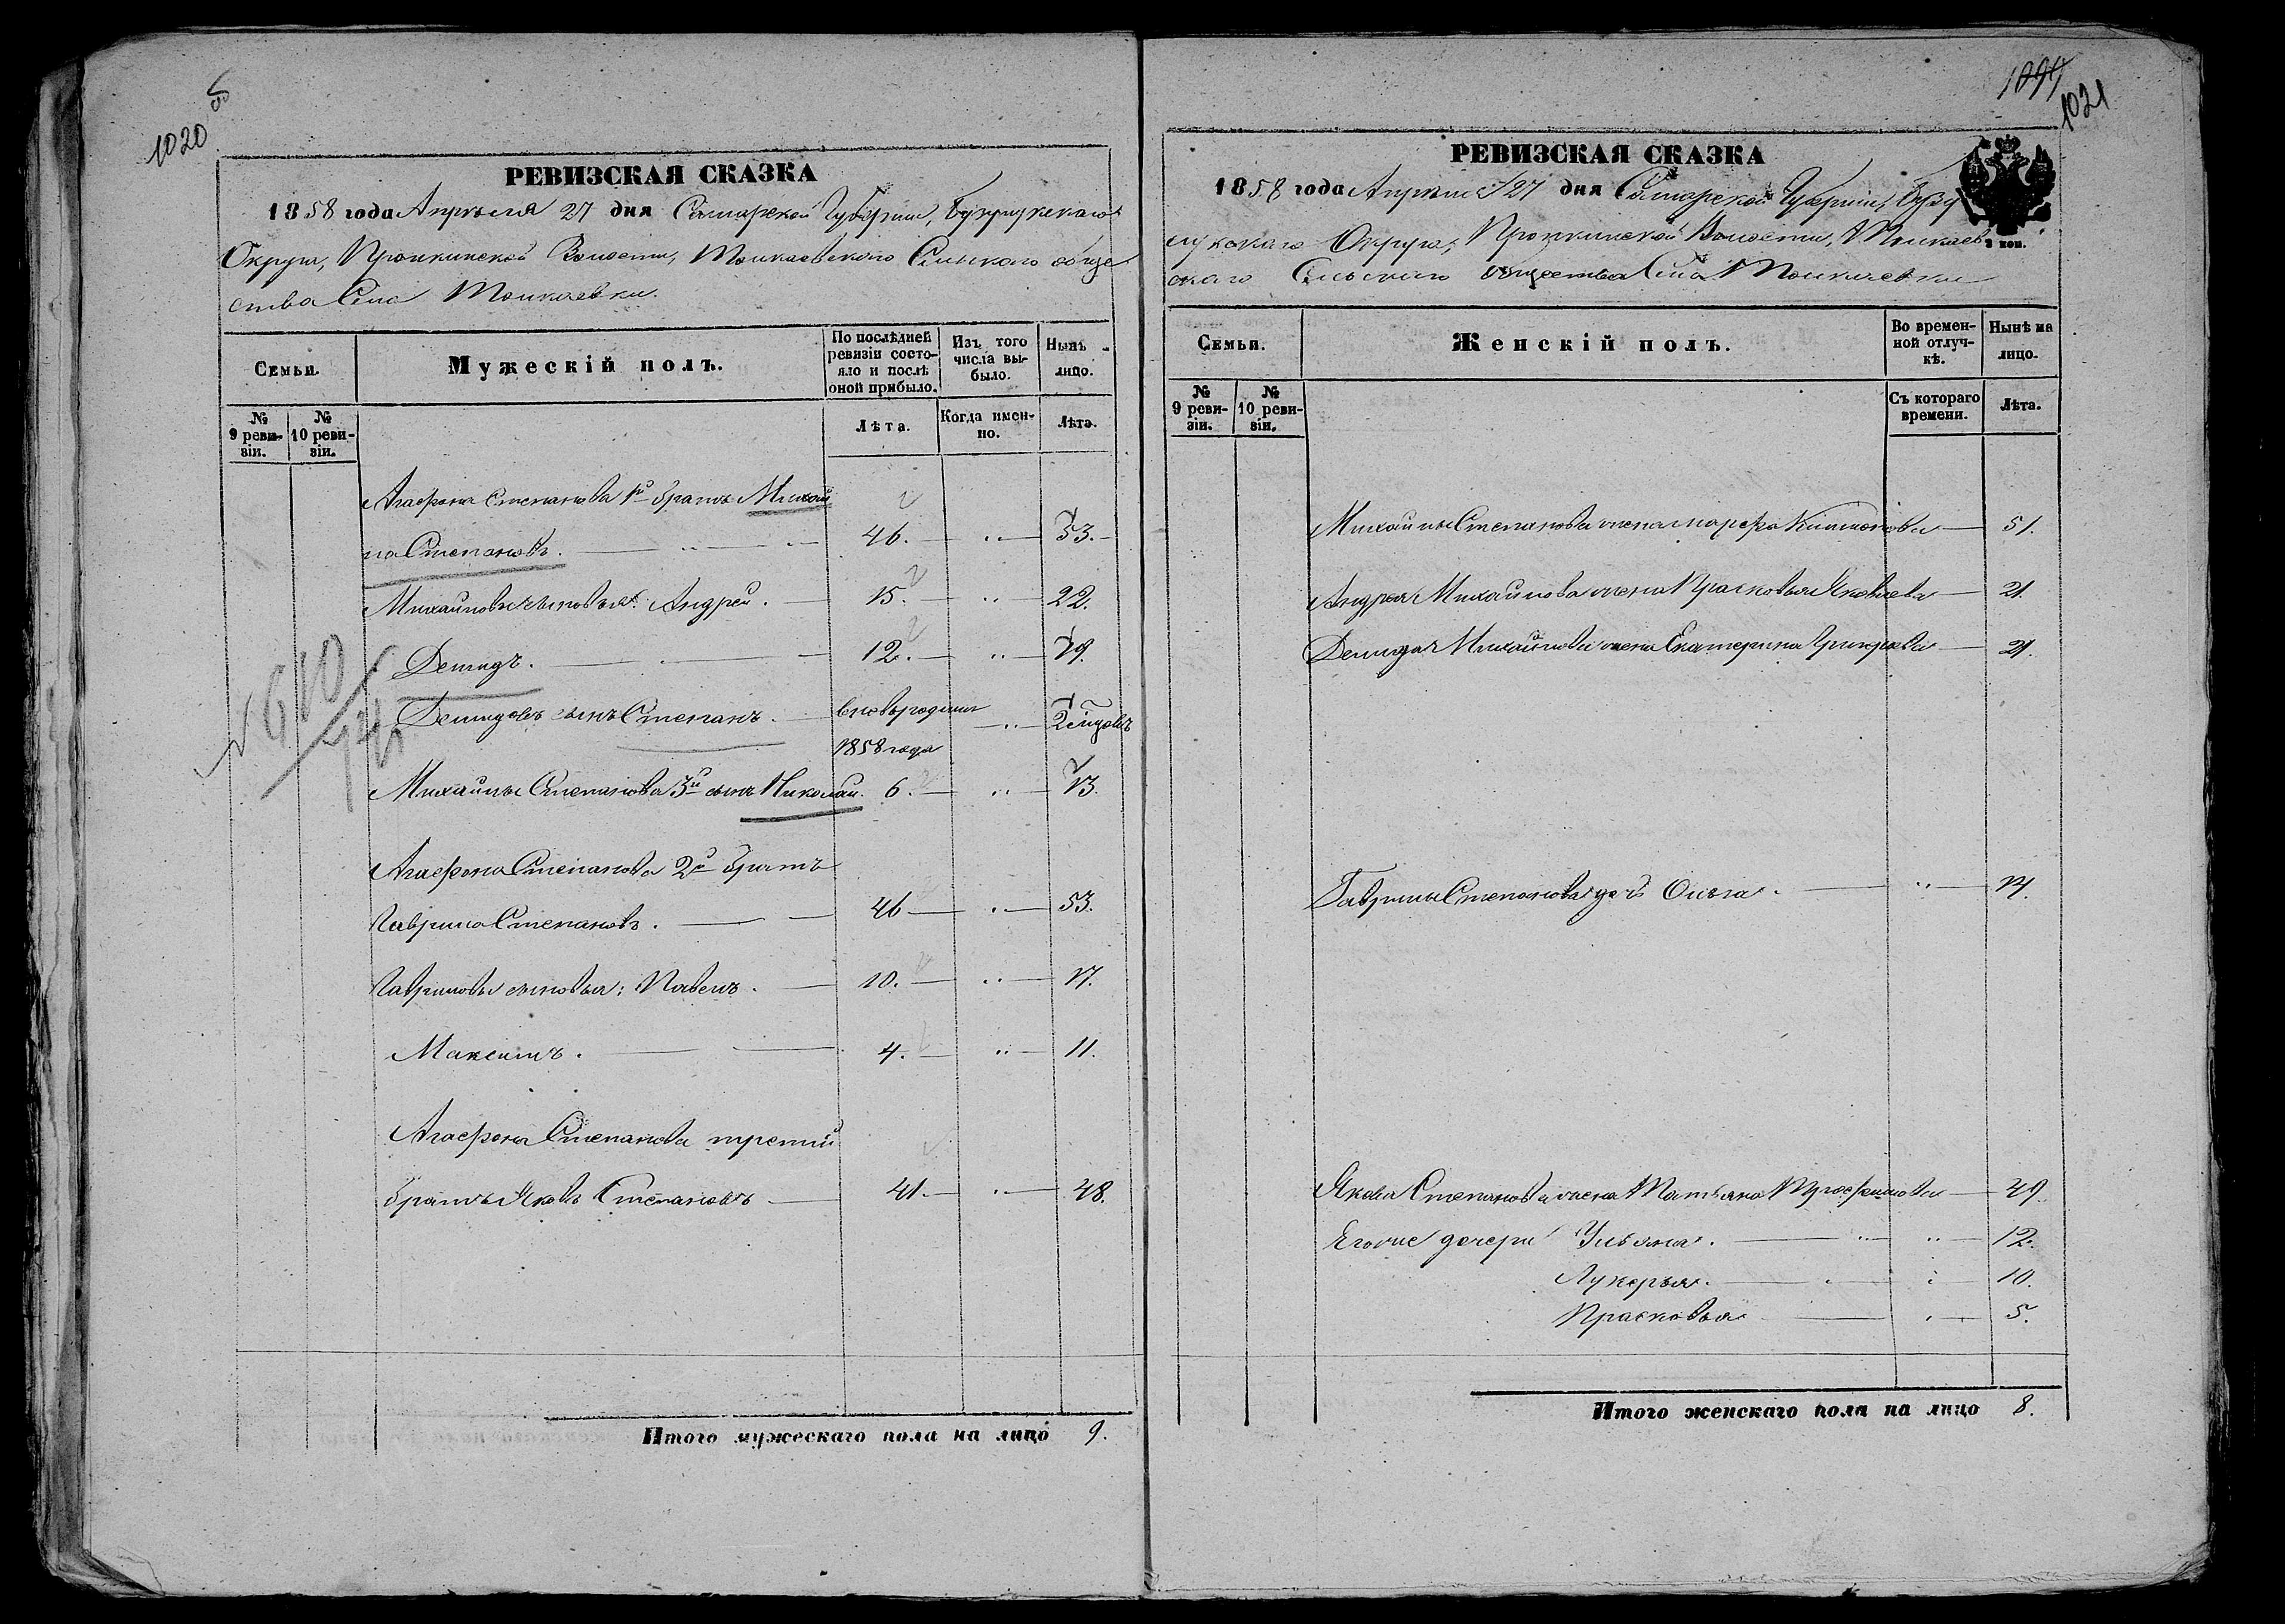 1020 об
РЕВИЗСКАЯ СКАЗКА
1858 года Апреля 27 дня Самарской Губернии, Бузулукскаго
Округа, Пронькинской Волости, Толкаевскаго Сельскаго обще
ства Села Толкаевки.
Семьи.
Мужескій полъ.
По послѣдней ревизіи состояло и послѣ оной прибыло.
Изъ того числа выбыло.
Нынѣ лицо.
№ 9 ревизіи.
№ 10 ревизіи.
Лѣта.
Когда именно.
Лѣта.
Агафона Степанова 1й братъ Михай
ла Степановъ. 46. 53.
Михайловы сыновья: Андрей. 15. 22.
Демидъ. 12. 19.
Демидовъ сынъ Степанъ. вновьрожден
1858 года
Михайлы Степанова 3й сынъ Николай. 6. 13.
Агафона Степанова 2й братъ
Гаврила Степановъ. 46 53.
Гавриловы сыновья: Павелъ. 10. 17.
Максимъ. 4. 11.
Агафона Степанова третій
братъ Яковъ Степановъ 41. 48.
Итого мужескаго пола на лицо 9.
1021
РЕВИЗСКАЯ СКАЗКА
1858 года Апреля 27 дня Самарской Губерніи, Бузу
лукскаго Округа, Пронькинской Волости, Толкаев
скаго Сельскаго общества Села Толкаевки
коп.
Семьи.
Женскій полъ.
Во временной отлучкѣ.
Нынѣ на лицо.
№ 9 ревизіи.
№ 10 ревизіи.
Съ котораго времени.
Лѣта.
Михайлы Степанова жена Марфа 51.
Андрея Михайлова жена Прасковья Яковлева 21.
Демида Михайлова жена Екатерина 21.
Гаврилы Степанова дочь Ольга. 14.
Якова Степанова жена Татьяна Трофимова 49.
Егоже дочери Ульяна. 12.
Лукерья. 10.
Прасковья 5.
Итого женскаго пола на лицо 8.